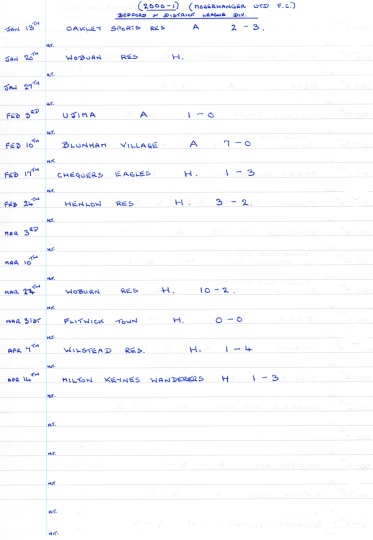 (2000-1) (MOGERHANGER UTD F.C.)
BEDFORD N DISTRICT LEAGUE DIV.
JAN 13TH OAKLEY SPORTS RES A 2-3.
H.T.
JAN 20TH WOBURN RES H.
H.T.
JAN 27TH
H.T.
FEB 3RD UJIMA A 1-0
H.T.
FEB 10TH BLUNHAM VILLAGE A 7-0
H.T.
FEB 17TH CHEQUERS EAGLES H. 1-3
H.T.
FEB 24TH HENLOW RES H. 3-2.
H.T.
MAR 3RD
H.T.
MAR 10TH
H.T.
MAR 24TH WOBURN RES H. 10-2.
H.T.
MAR 31ST FLITWICK TOWN H. 0-0
H.T.
APR 7TH WILSTEAD RES. H. 1-4
H.T.
APR 14TH MILTON KEYNES WANDERERS H 1-3
H.T.
H.T.
H.T.
H.T.
H.T.
H.T.